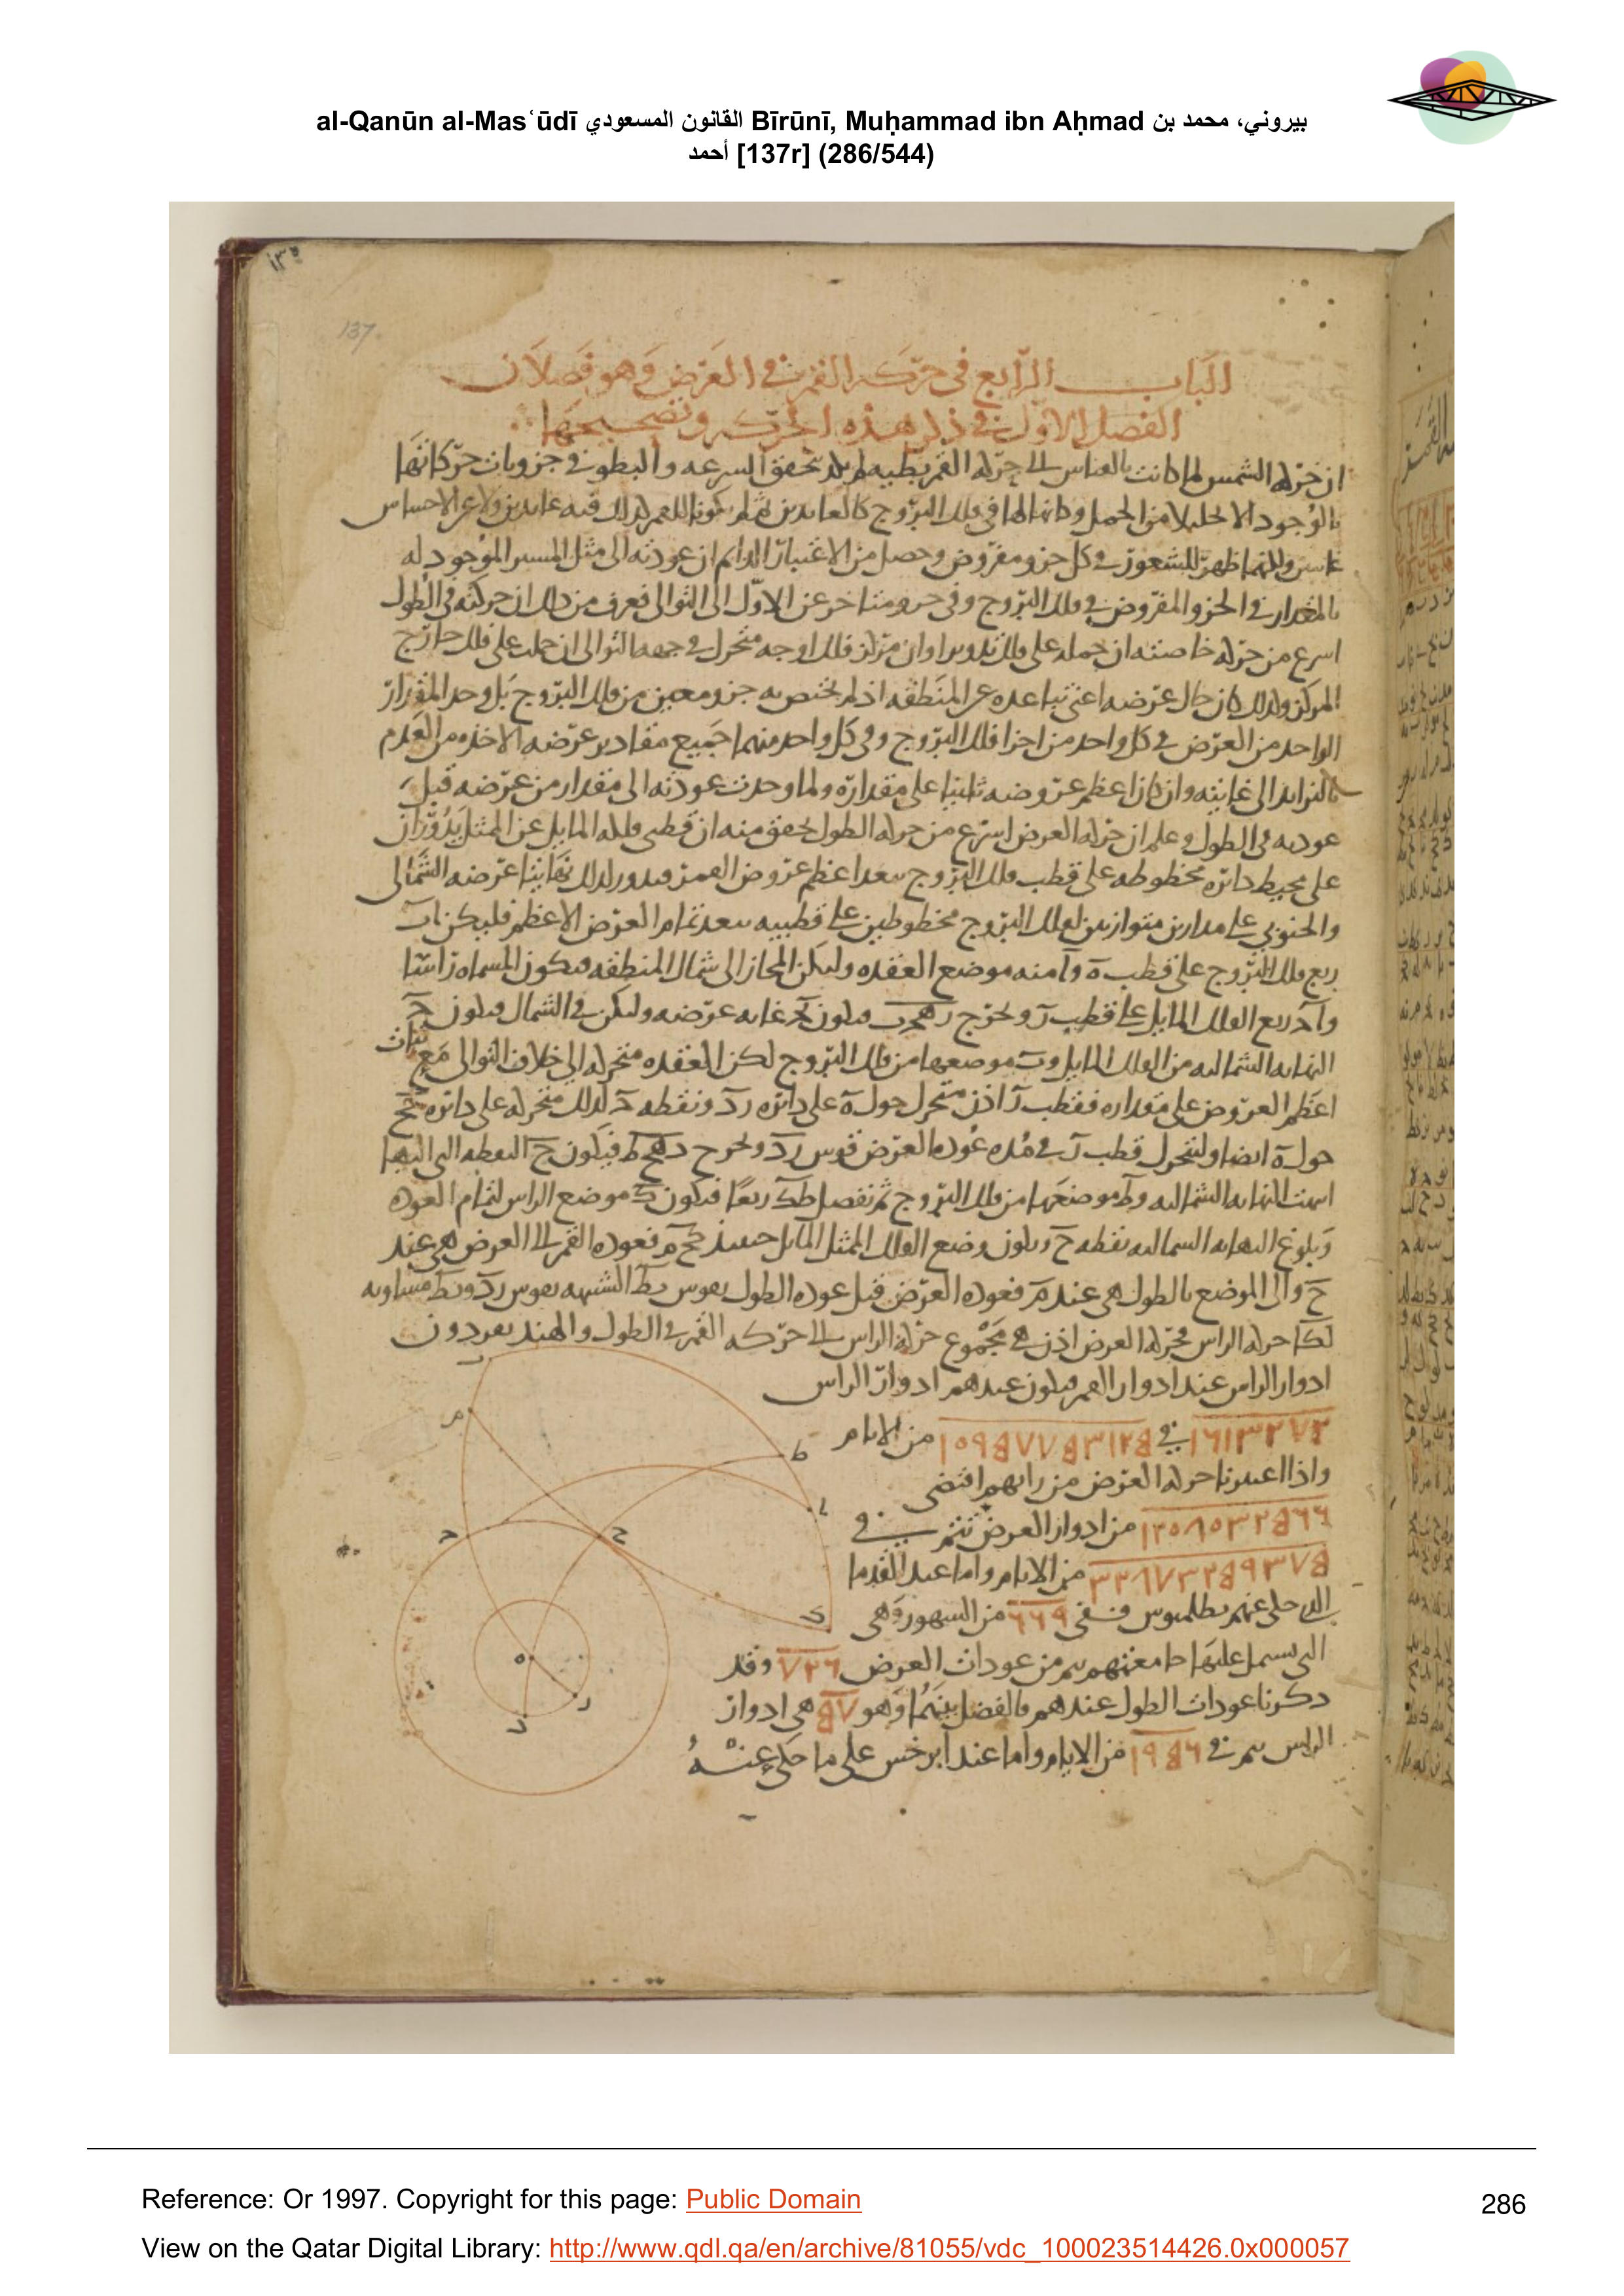 al-Qanūn al-Masʿūdī القانون المسعودي Bīrūnī, Muḥammad ibn Aḥmad بيروني، محمد بن
أحمد [137r] (286/544)
137
الباب الرابع في حركة القمر في العرض وهو فصلان
الفصل الاول في ذكر هذه الحركة وتصحيحها
ان حركه الشمس لما كانت بالقياس الى حركه القمر بطيه لم تحقق السرعه والبطو في جزويات حركاتها
بالوجود الا قليلا من الجمل
ظهر للشعور في كل جزو مفروض وحصل من الاعتبار الدايم ان عودته الى مثل المسير الموجود له
بالمقدار في الجزو المفروض في فلك البروج وفي جزو متاخر عن الاول الى التوالى فعرف من ذلك ان حركته في الطول
اسرع من حركه خاصته ان حمله على فلك تدوير او ان مركز فلك اوجه متحرك في جهه التوالى ان حملت على فلك خارج
المركز ولذلك كان حال عرضه اعنى تباعده عن المنطقه اذ لم يختص به جزو معين من فلك البروج بل وجد المقدار
الواحد من العرض في كل واحد من اجزا فلك البروج وفي كل واحد منهما جميع مقادير عرضه الاخذه من العدم
بالتزايد الى غايته وان كان اعظم عروضه ثابتا على مقداره ولما وجدت عودته الى مقدار من عرضه قبل
عودته في الطول وعلم ان حركه العرض اسرع من حركه الطول تحقق منه ان قطبى فلكه المايل عن الممثل يدوران
على محيط دائره مخطوطه على قطب فلك البروج ببعد اعظم عروض القمر فيدور لذلك نهايتا عرضه الشمالى
والجنوبى على مدارين متوازيين لفلك البروج مخطوطين على قطبيه ببعد تمام العرض الاعظم فليكن اب
ربع فلك البروج على قطب ه وا منه موضع العقده وليكن المجاز الى شمال المنطقه فيكون المسماه راسا
واج ربع الفلك المايل على قطب ر ونخرج رهجب فيكون بج غايه عرضه وليكن في الشمال فيكون ج
النهايه الشماليه من الفلك المايل وب موضعها من فلك البروج لكن العقده متحركه الى خلاف التوالى مع ثبات
اعظم العروض على مقداره فقطب ر اذن متحرك حول ه على دائره رد ونقطه ج لذلك متحركه على دائره جح
حول ه ايضا وليتحرك قطب ر في مده عوده العرض قوس رد ونخرج دهحط فيكون ح النقطه التى اليها
انتهت النهايه الشماليه وط موضعها من فلك البروج ثم نفصل طك ربعا فيكون ك موضع الراس لتمام العوده
وبلوغ النهايه الشماليه نقطه ح ويكون وضع الفلك الممثل المايل حينئذ كحم فعوده القمر الى العرض هى عند
ح والى الموضع بالطول هى عند م فعوده العرض قبل عوده الطول بقوس بط الشبيهه بقوس رد وبط مساويه
لكا حركه الراس فحركه العرض اذن هى مجموع حركه الراس الى حركه القمر في الطول والهند يفردون
ادوار الراس عند ادوار القمر فيكون عندهم ادوار الراس
من الايام
واذا اعتبرنا حركه العرض من رايهم اقتضى
من ادوار العرض تتم في
من الايام واما عند القدما
الذى حكى عنهم بطلميوس ففى ٦٦٩ من الشهور وهى
التى يشتمل عليها جامعتهم يتم من عودات العرض ٧٢٦ وقد
ذكرنا عودات الطول عندهم فالفضل بينهما وهو هى ادوار
الراس يتم في من الايام واما عند ابرخس على ما حكى عنه
Reference: Or 1997. Copyright for this page: Public Domain
286
View on the Qatar Digital Library: http://www.qdl.qa/en/archive/81055/vdc_100023514426.0x000057